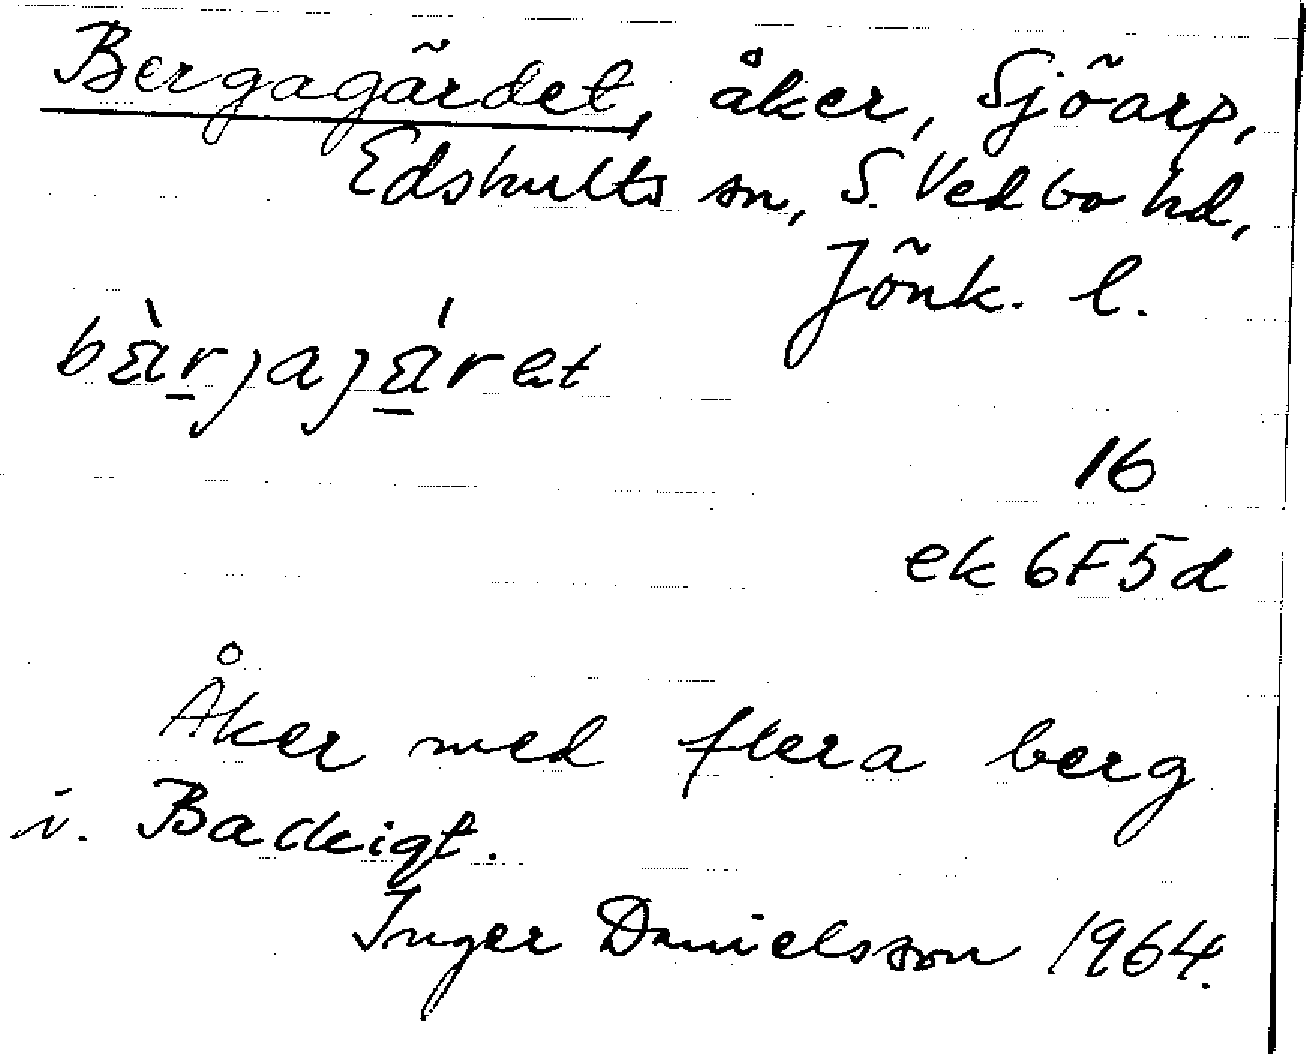 Bergagärdet, åker, Sjöarp,
Edshults sn, S. Vedbo hd,
Jönk. l.
bæ̀rjajǽret
16
ek 6F5d
Åker med flera berg
i. Backigt.
Inger Danielsson 1964.